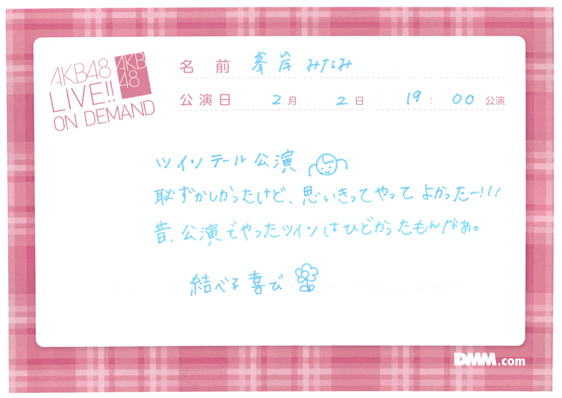 AKB48
LIVE!!
ON DEMAND
AKB
48
名 前 峯岸 みなみ
公演日 2月 2日 19:00公演
ツインテール公演
恥ずかしかったけど、思いきってやって よかったー!!!
昔、公演でやったツインはひどかったもんなぁ。
結べる喜び
DMM.com